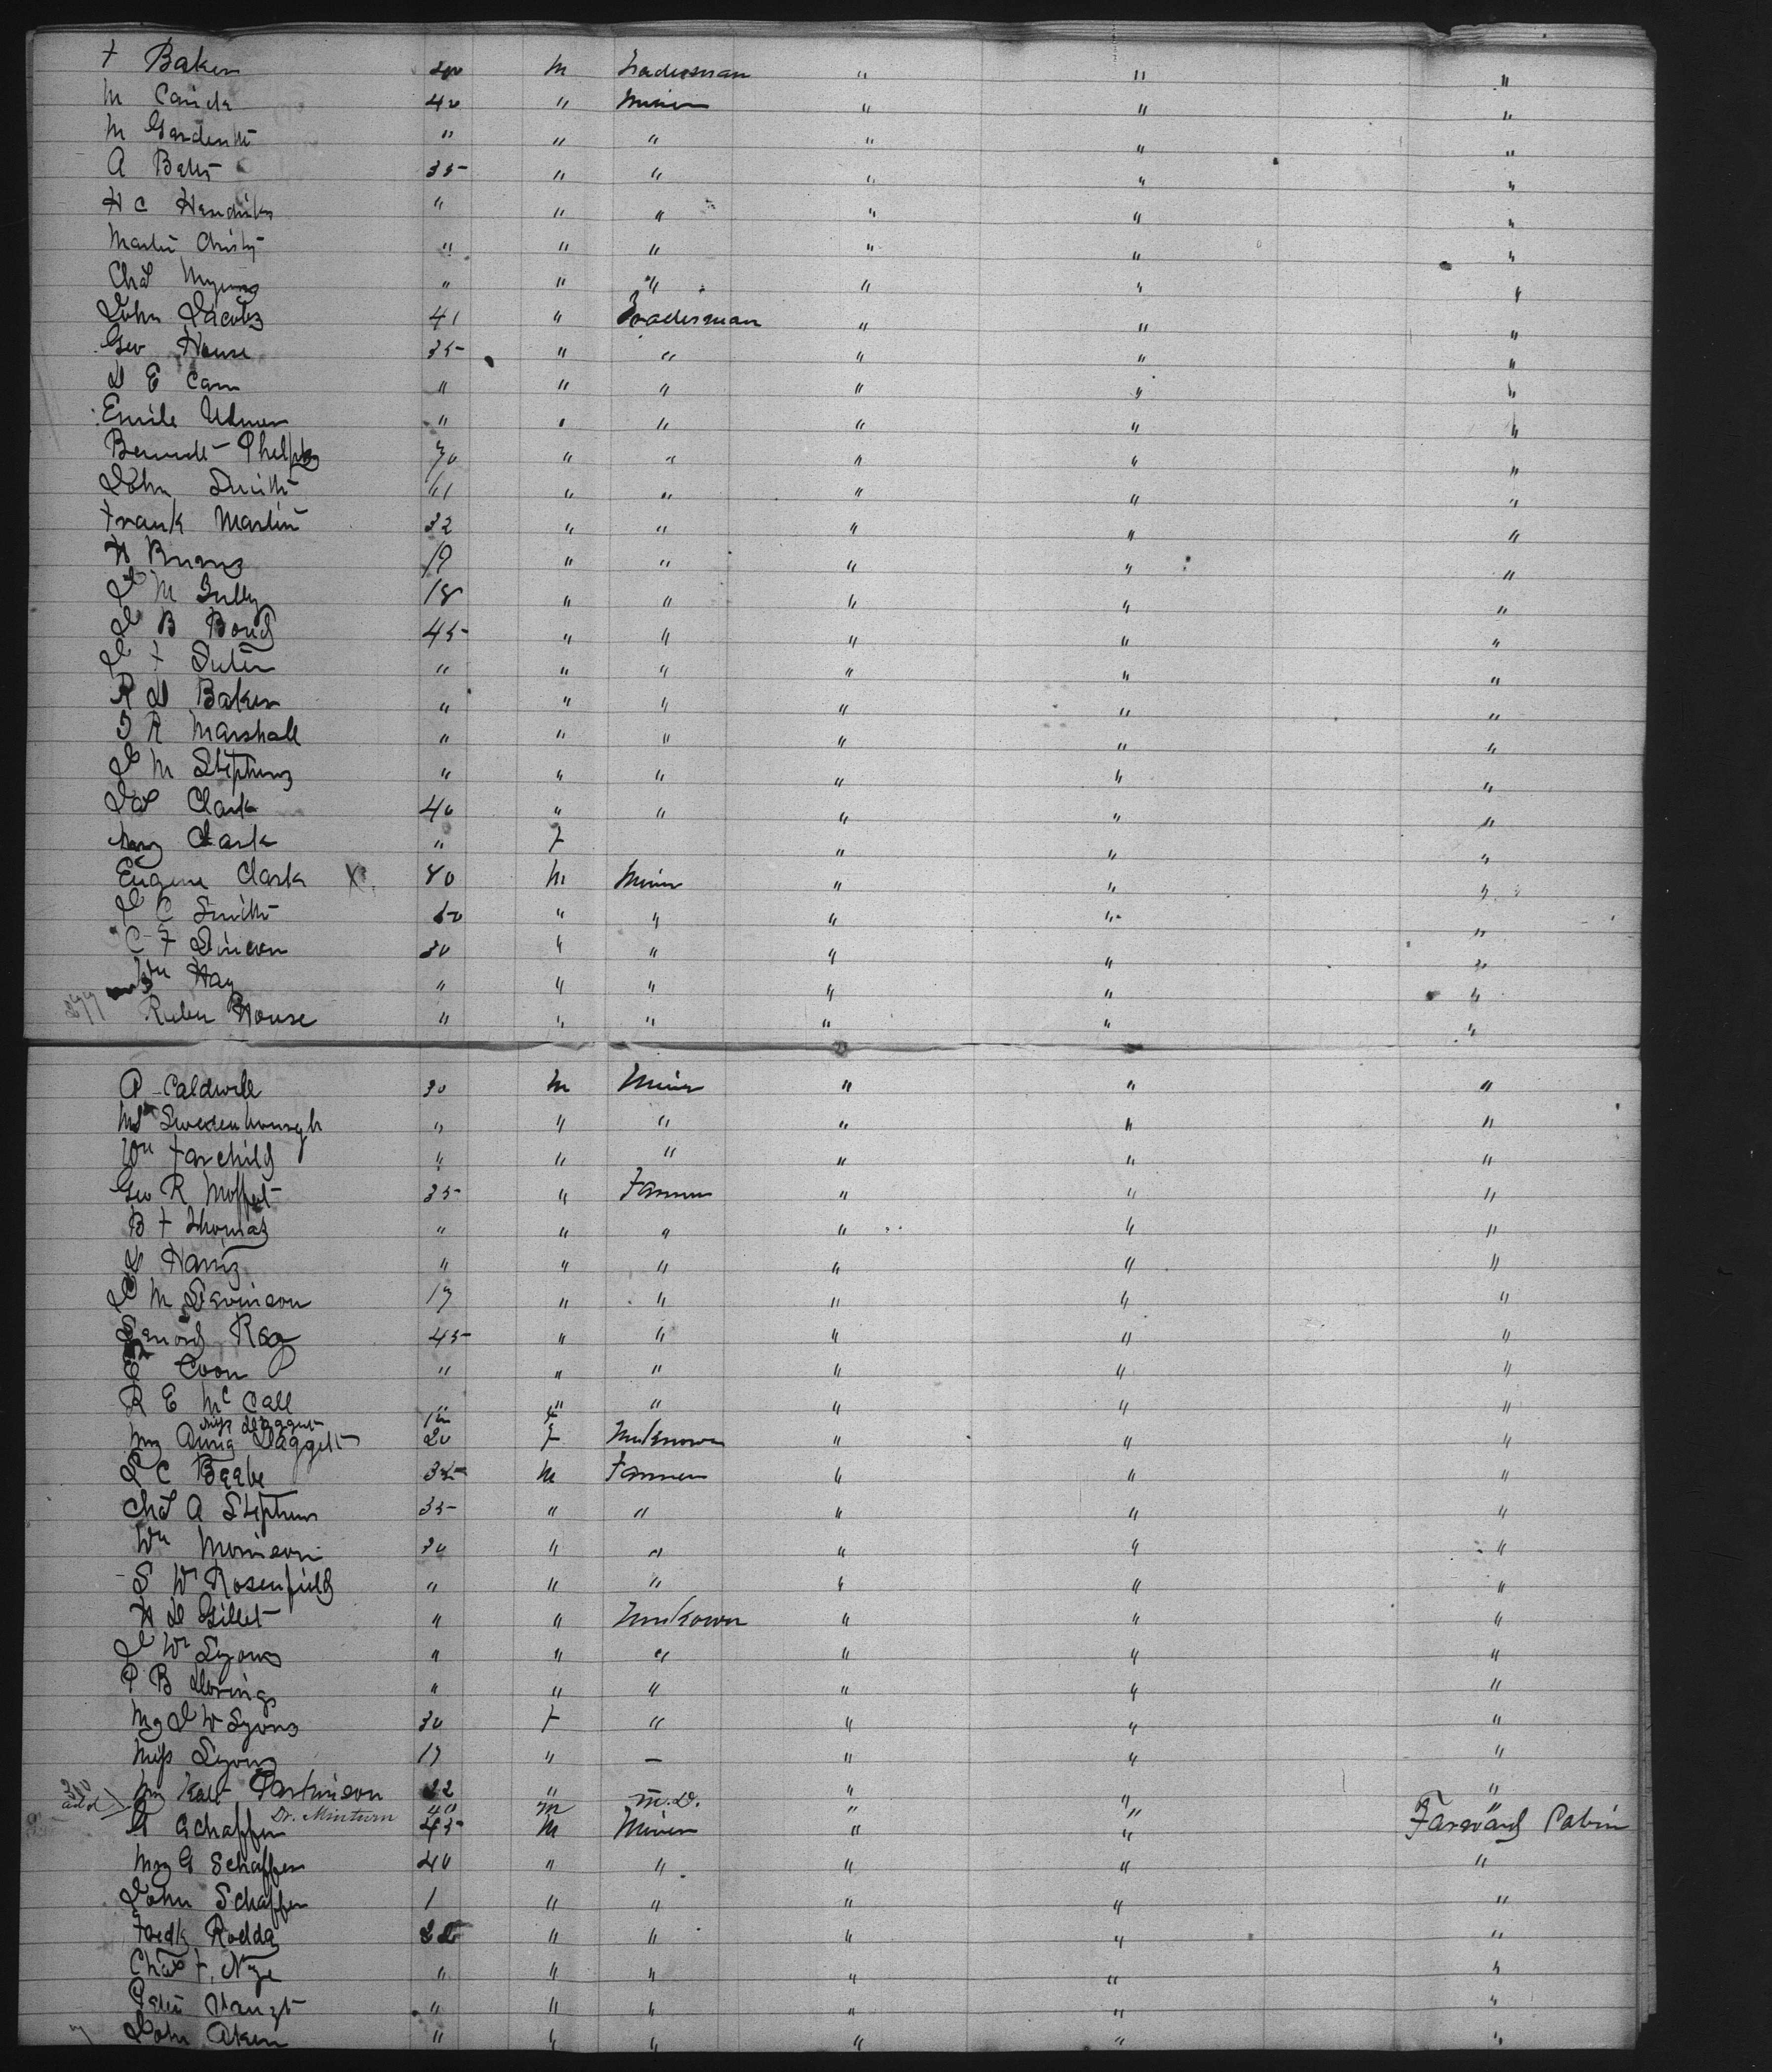 F Baker 30 M Tradesman " " "
M Carick 40 " Miner " " "
M " " " " " "
A Bates 35 " " " " "
H C Hendricks " " " " " "
Martin Christy " " " " " "
Chas Myers " " " " " "
John Jacobs 41 " Tradesman " " "
Geo House 35 " " " " "
D E Cam " " " " " "
Emile Ulmer " " " " " "
Phelps 70 " " " " "
John Smith 41 " " " " "
Frank Martin 32 " " " " "
H Burns 19 " " " " "
J M Tully 18 " " " " "
J B Boud 45 " " " " "
J F Suter " " " " " "
R D Baker " " " " " "
T R Marshall " " " " " "
J M Stephens " " " " " "
Jas Clark 40 " " " " "
Mrs Clark " F " " "
Eugene Clark X 80 M Miner " " "
J C Smith 60 " " " " "
C F Simson 30 " " " " "
Wm Hay " " " " " "
Ruben House " " " " " "
A Caldwell 30 M Miner " " "
Ms Swedenbourgh " " " " " "
Wm Farchild " " " " " "
Geo R Moffet 35 " Farmer " " "
B F Thomas " " " " " "
D Harris " " " " " "
J M Levinson 17 " " " " "
Lenord Ray 45 " " " " "
E Coon " " " " " "
R E McCall " " " " "
Miss Daggett 12 F
Mrs Anna Daggett 20 F Unknown " " "
L C Beebe 35 M Farmer " " "
Chas A Stephens 35 " " " " "
Wm Morrison 30 " " " " "
S W Rosenfield " " " " " "
H D Gillet " " Unkown " " "
J W Lyons " " " " " "
P B Dorings " " " " " "
Mrs J W Lyons 30 F " " " "
Miss Lyons 17 " — " " "
Mrs Kate Parkinson 22 " " " "
add Dr. Minturn 40 m M.D. " " "
G Schaffer 45 M Miner " " Farward Cabin
Mrs G Schaffer 40 " " " " "
John Schaffer 1 " " " " "
Fredk Rodda 25 " " " " "
Chas F. Nye " " " " " "
Peter " " " " " "
John Aken " " " " " "